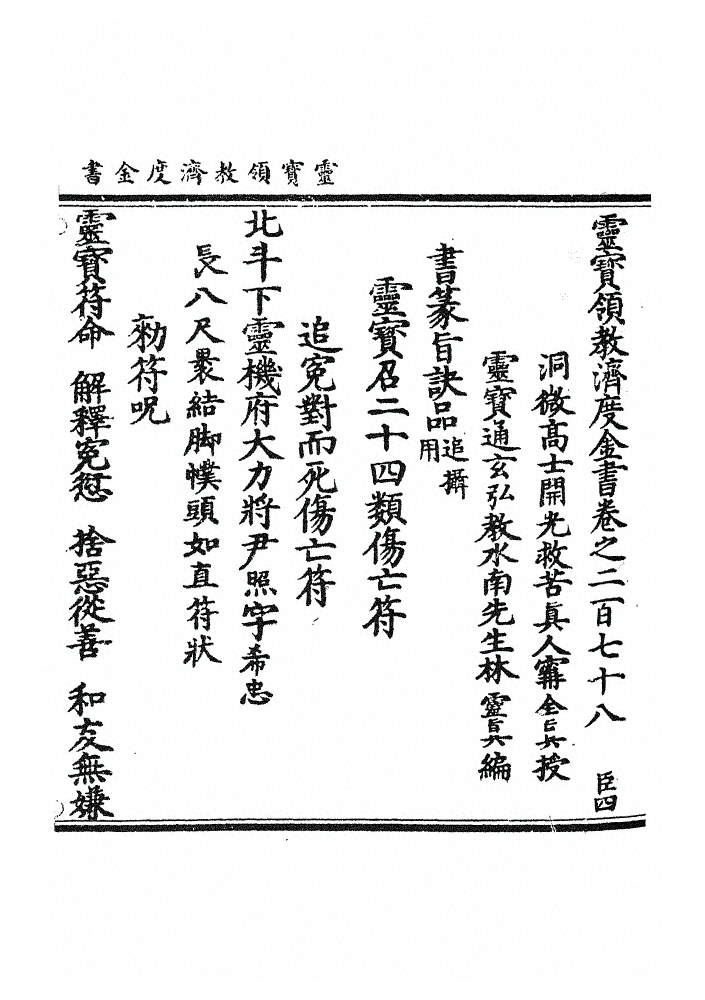 靈寶領教濟度金書
靈寶領教濟度金書卷之二百七十八 臣四
洞微高士開光救苦真人甯全真授
靈寶通玄弘教水南先生林靈真編
書篆旨訣品追攝用
靈寶召二十四類傷亡符
追冤對而死傷亡符
北斗下靈機府大力將尹照字希忠
長八尺褁結脚幞頭如直符狀
勑符呪
靈寶符命 解釋冤愆 捨惡從善 和友無嫌